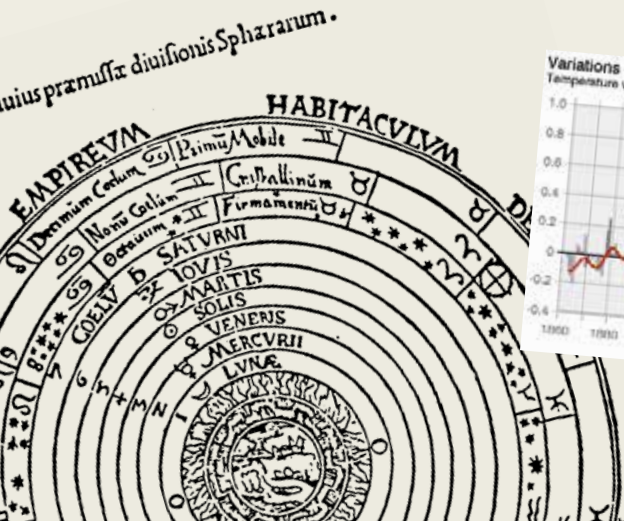 huius præmissæ diuisionis Sphærarum.
EMPIREVM HABITACVLVM
Decimum Coelum Primū Mobile
Nonū Coelum Cristallinūm
Octauum Firmamentū
COELV SATVRNI
IOVIS
MARTIS
SOLIS
VENERIS
MERCVRII
LVNÆ
Variations
Temperature
1.0
0.8
0.6
0.4
0.2
0
-0.2
-0.4
1860 1880